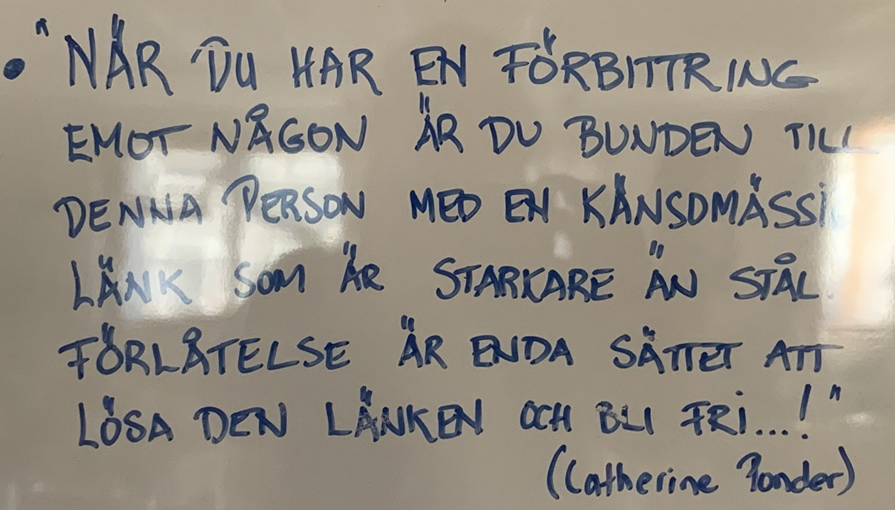 • "NÄR DU HAR EN FÖRBITTRING
EMOT NÅGON ÄR DU BUNDEN TILL
DENNA PERSON MED EN KÄNSDMÄSSI
LÄNK SOM ÄR STARKARE ÄN STÅL.
FÖRLÅTELSE ÄR ENDA SÄTTET ATT
LÖSA DEN LÄNKEN OCH BLI FRI...!"
(Catherine Ponder)